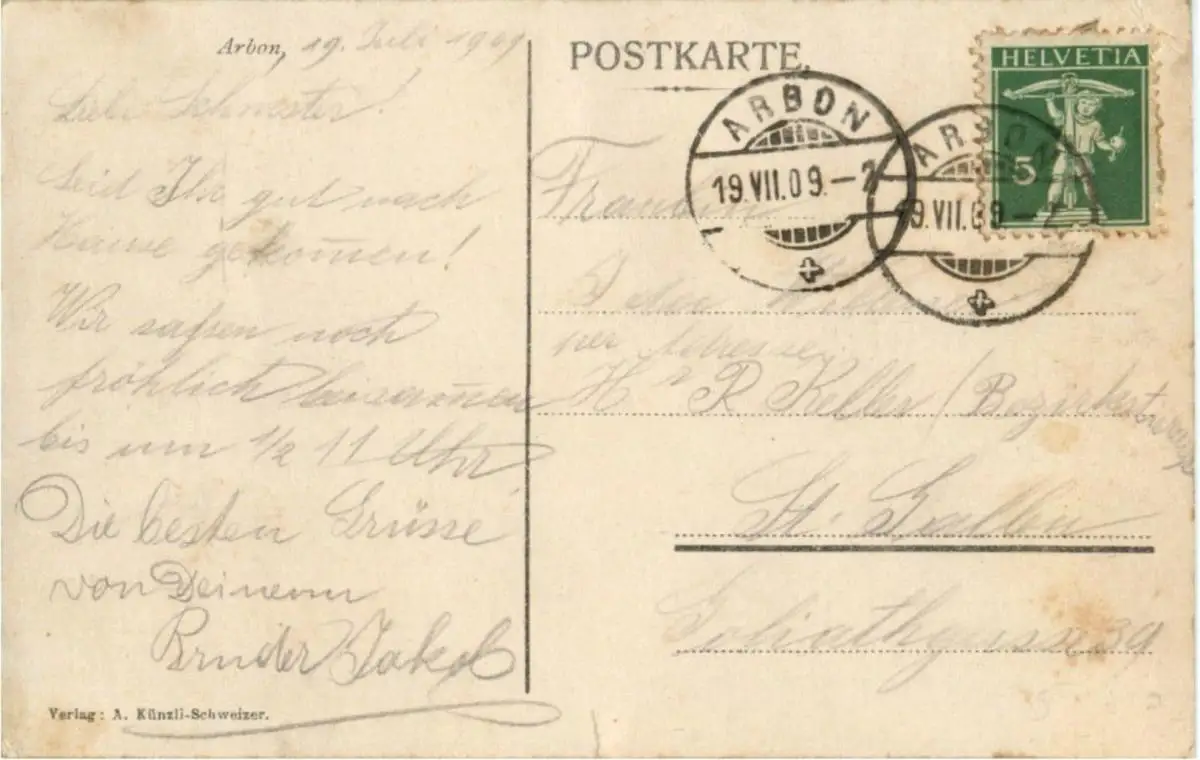 Arbon, 19. Juli 1909
Liebe Schwester!
Seid Ihr gut nach
Hause gekom̄en!
Wir saßen noch
fröhlich beisam̄en
bis um 1/2 11 Uhr
Die besten Grüsse
von Deinem
Bruder Jakob
Verlag: A. Künzli-Schweizer.
POSTKARTE.
HELVETIA
5
ARBON
19.VII.09.–2
ARBON
19.VII.09–2
Ida
per Adresse
H R Keller (
St. Gallen
Goliathgasse 39